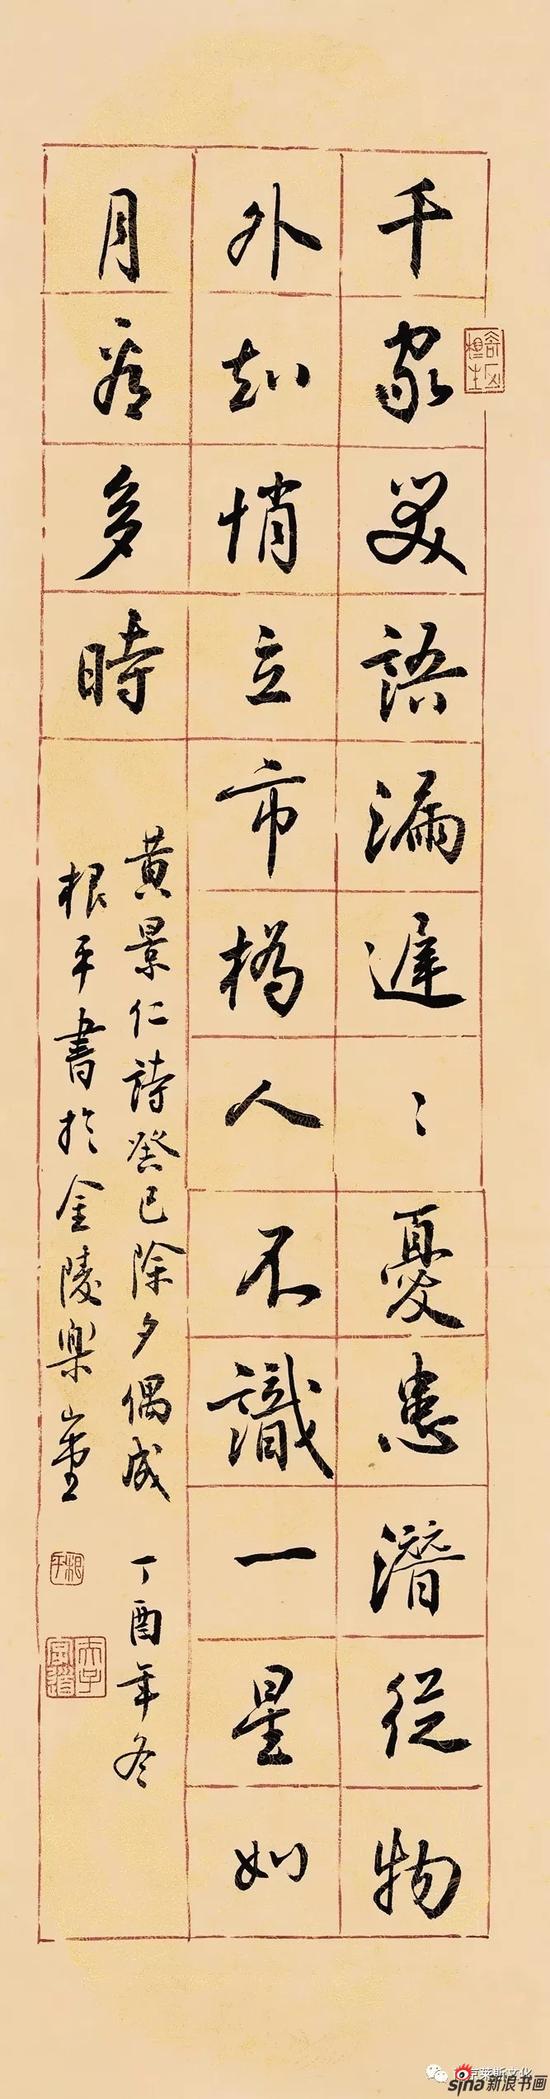 千家笑語漏遲〻憂患潛從物
外知悄立市橋人不識一星如
月看多時
黄景仁詩癸巳除夕偶成 丁酉年冬
根平書於金陵樂山堂
根平
莱斯文化
sina新浪书画